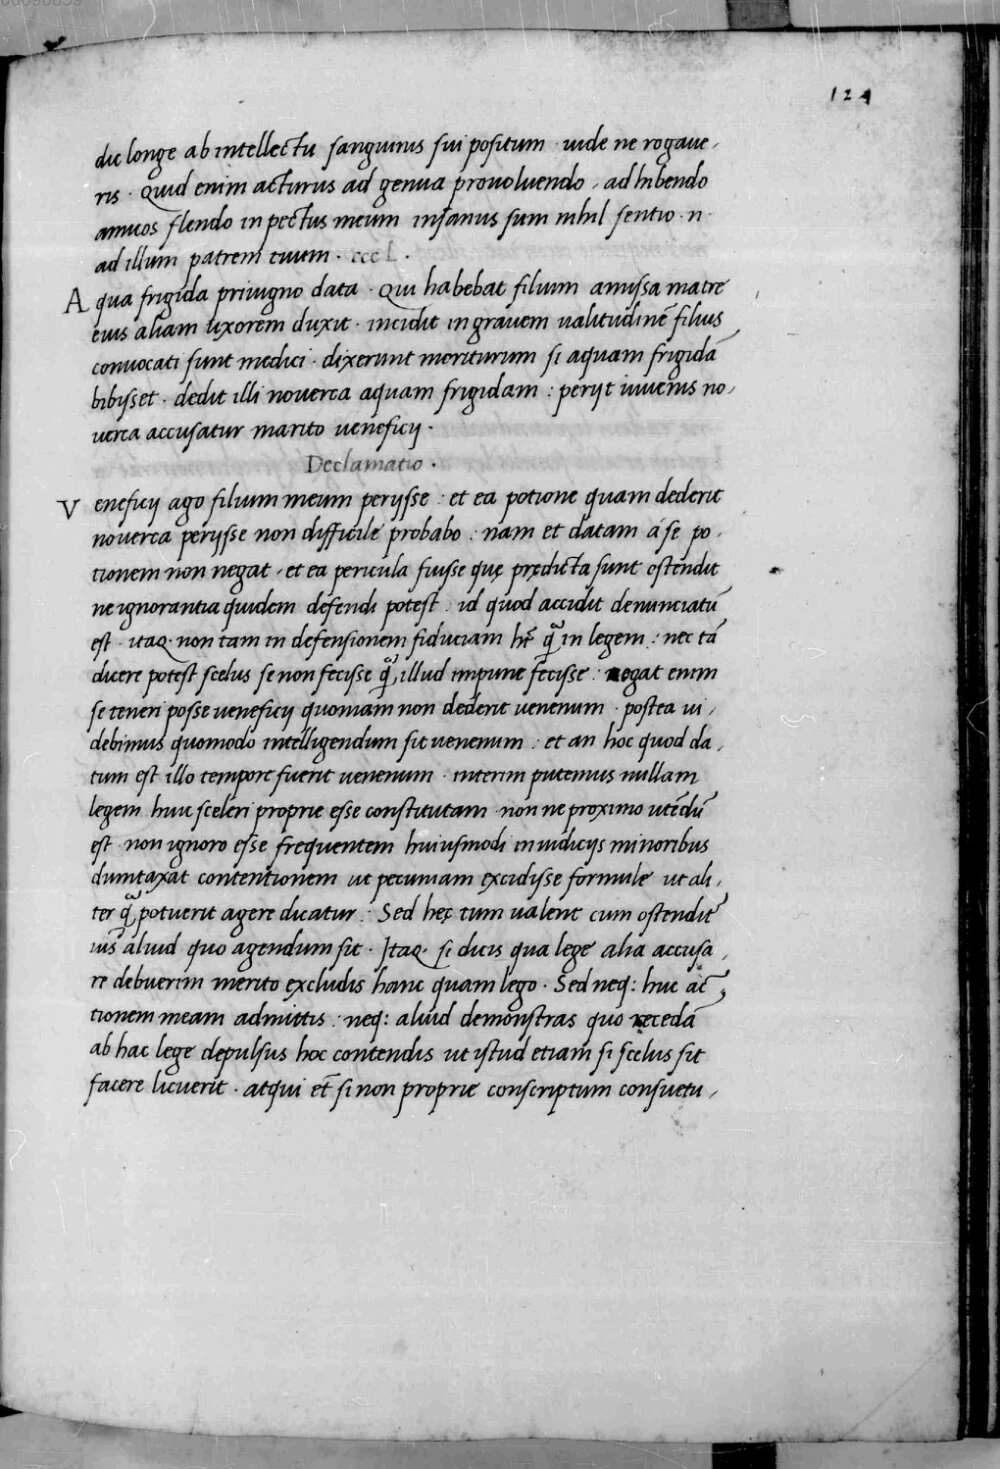 124
dic longe ab intellectu sanguinis sui positum · uide ne rogaue,
ris · Quid enim acturus ad genua prouoluendo, adhibendo
amicos flendo in pectus meum insanus sum nihil sentio · n ·
ad illum patrem tuum · cccL ·
Aqua frigida priuigno data · Qui habebat filium amissa matre
eius aliam uxorem duxit · incidit in grauem ualitudinē filius
conuocati sunt medici · dixerunt moriturum si aquam frigidā
bibisset · dedit illi nouerca aquam frigidam : perijt iuuenis no,
uerca accusatur marito ueneficij ·
Declamatio ·
Veneficij ago filium meum perijsse : et ea potione quam dederit
nouerca perijsse non difficile probabo : nam et datam á se po,
tionem non negat, et ea pericula fuisse quę prędicta sunt ostendit
ne ignorantia quidem defendi potest : id quod accidit denunciatū
est · itaq· non tam in defensionem fiduciam ht̄ q̄ in legem : nec tā
dicere potest scelus se non fecisse q̄, illud impune fecisse : negat enim
se teneri posse ueneficij quoniam non dederit uenenum · postea ui,
debimus quomodo intelligendum sit uenenum : et an hoc quod da,
tum est illo tempore fuerit uenenum · interim putemus nullam
legem huic sceleri proprie esse constitutam · non ne proximo utēdū
est · non ignoro esse frequentem huiusmodi in iudicijs minoribus
dumtaxat contentionem ut pecuniam excidisse formule ut ali,
ter q̄ potuerit agere dicatur : Sed hęc tum ualent cum ostendit᷑
ius aliud quo agendum sit · Itaq· si dicis qua lege alia accusa,
re debuerim merito excludis hanc quam lego · Sed neq: huc ac̄,
tionem meam admittis : neq: aliud demonstras quo recedā
ab hac lege depulsus hoc contendis ut istud etiam si scelus sit
facere licuerit · atqui et̄ si non proprie conscriptum consuetu,